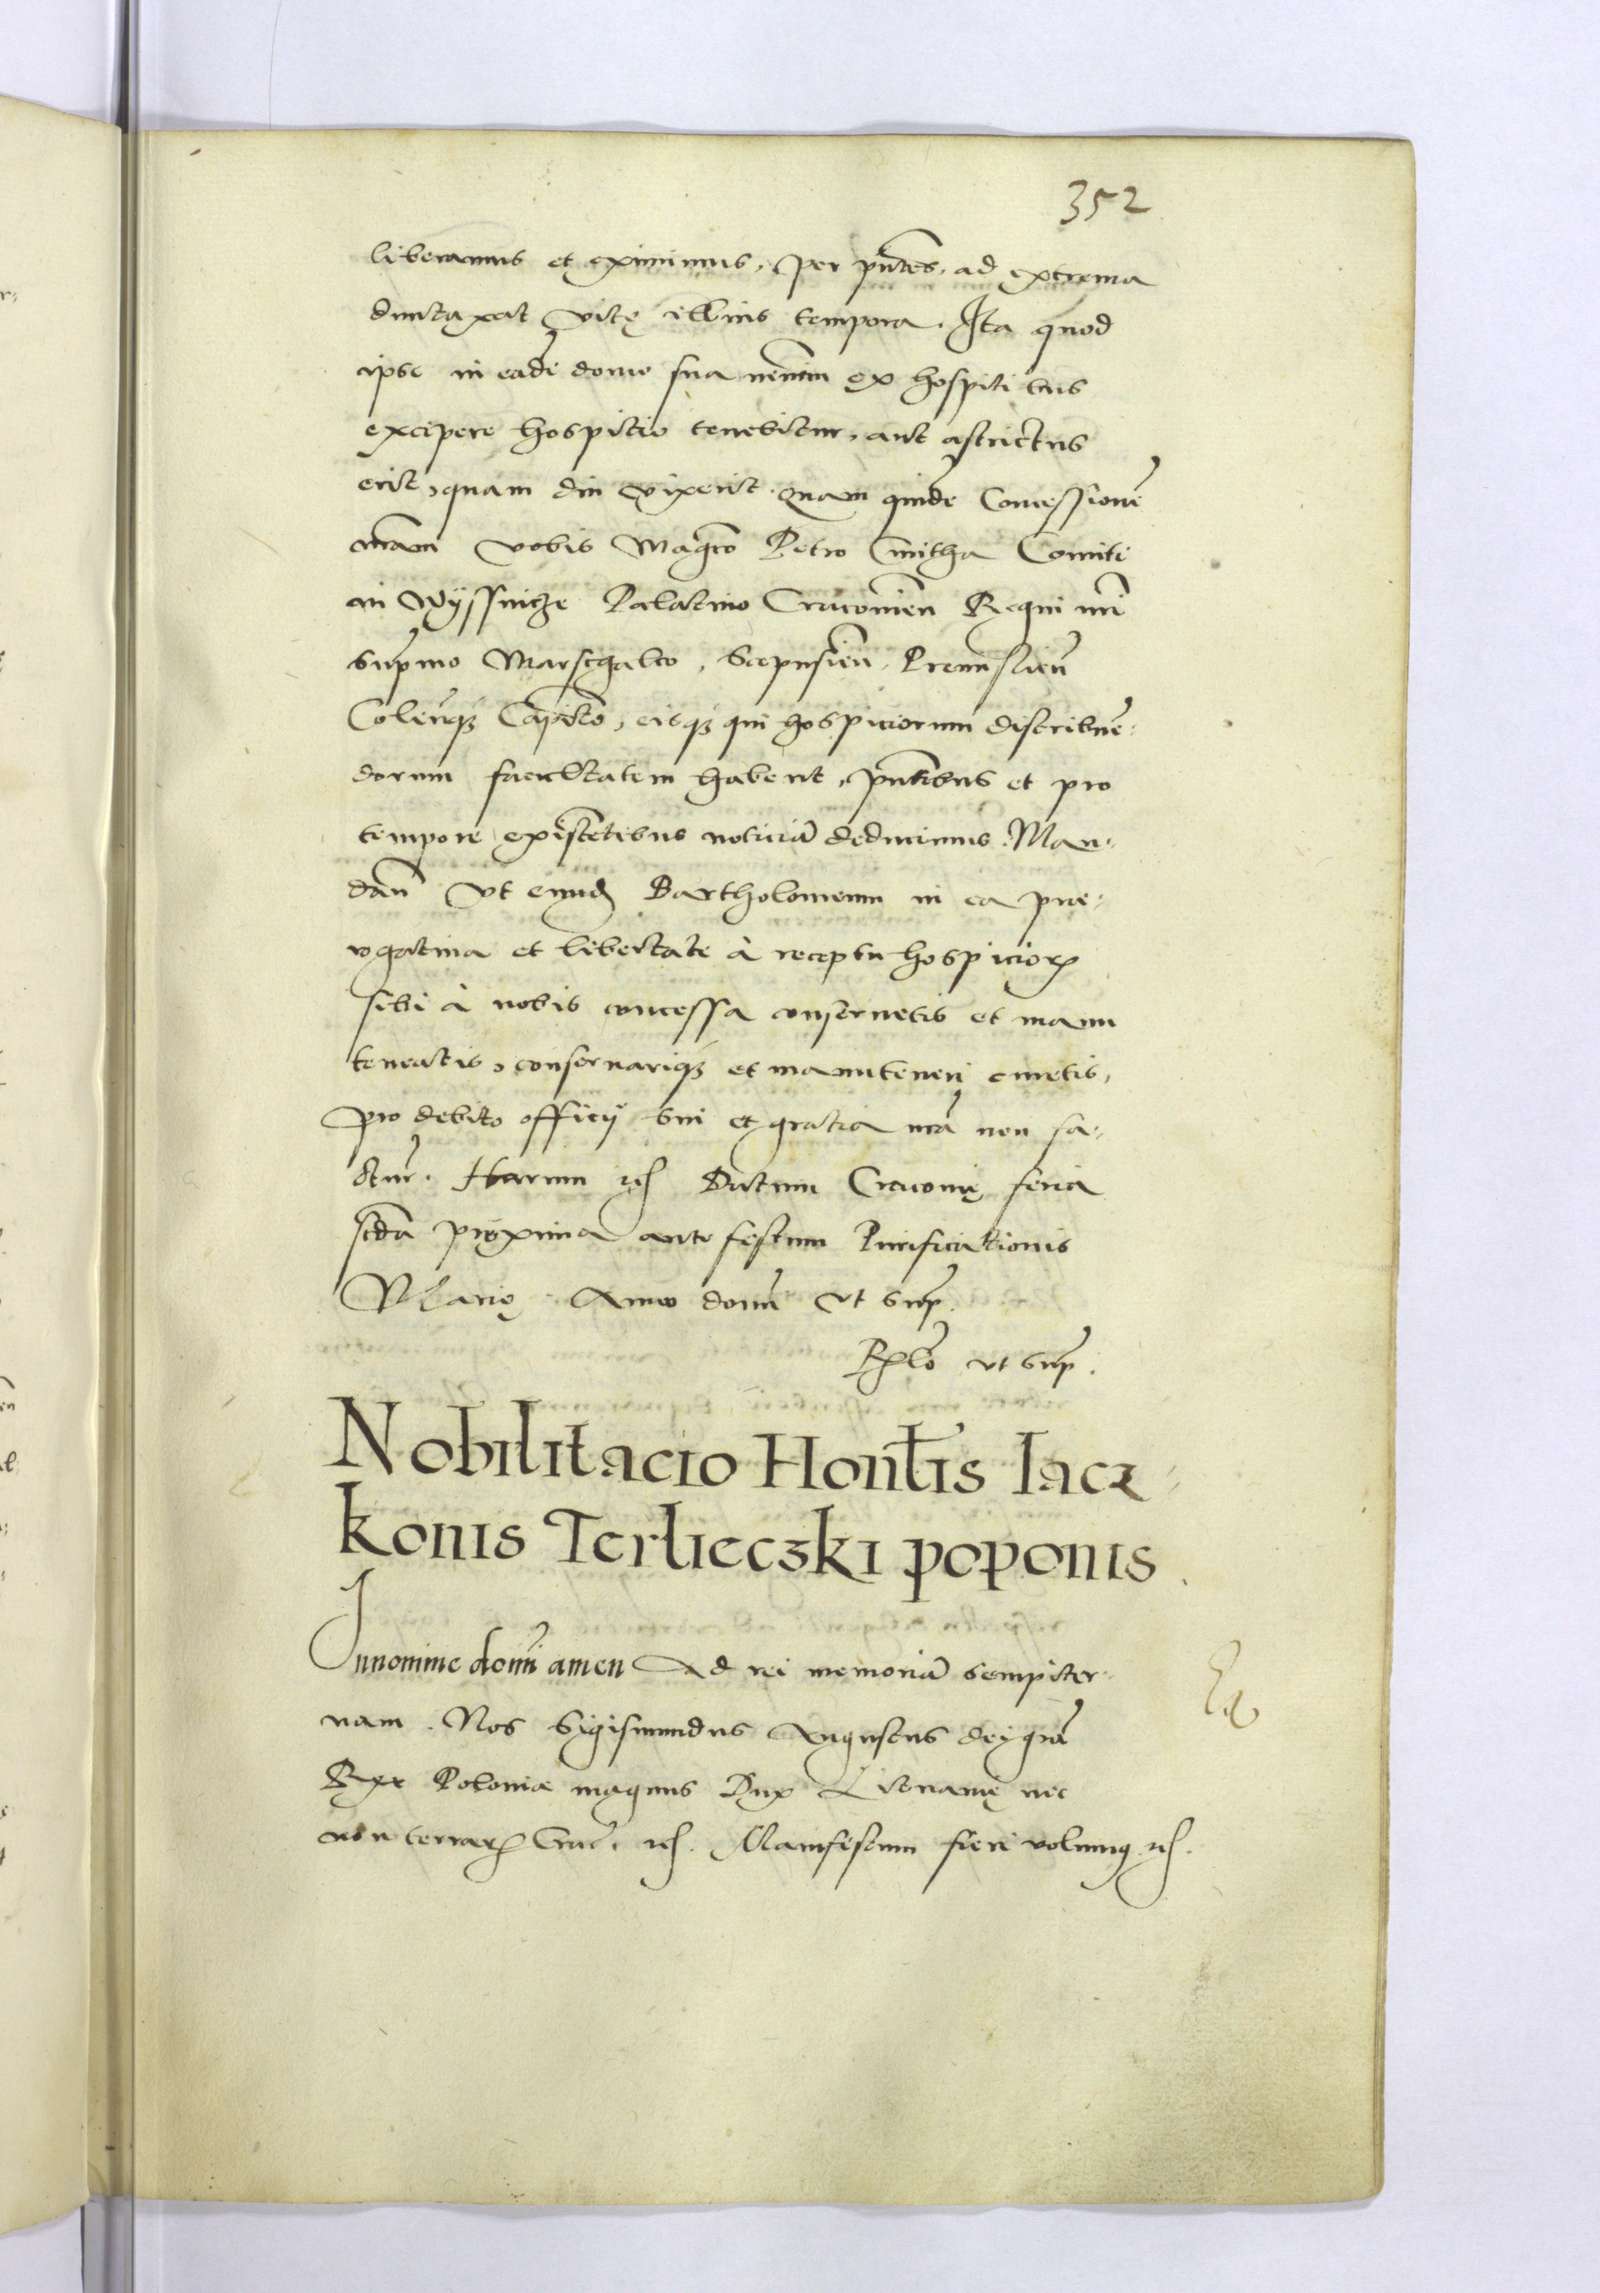 352
liberamus et eximimus, per pñtes, ad extrema
duntaxat vitę illius tempora. Ita quod
ipse in eadē domo sua neminē ex hospitibus
excipere hospitio tenebitur, aut astrictus
erit, quam diu vixerit. Quam quidē Concessionē
nrām vobis Magco Petro Cmitha Comiti
in Wyssnicze Palatino Cracovieñ Regni nrī
supmo Marschalco, Scepusieñ, Premislieñ
Coleñq3 Capitō, eisq3 qui hospiciorum distribuē-
dorum facultatem habent, pñtibus et pro
tempore existētibus noticiā deducimus. Man-
dañ vt eund Bartholomeum in ea præ-
rogatiua et libertate à receptu hospicioꝝ
sibi à nobis concessa conseruetis et manu
teneatis, conseruariq3 et manuteneri curetis,
pro debito officij sui et gratia nrā non fa-
ctur. Harum etc Datum Cracovię feria
scdā proxima ante festum Purificationis
Marię Anno domī vt supr.
Rlō vt supr.
Nobilitacio Honñtis Iacz-
konis Terlieczki poponis.
In nomine domī amen Ad rei memoriā sempiter-
nam. Nos Sigismundus Augustus dei grā
Rex Poloniæ magnus Dux Lituanię nec
non terraꝝ Crac. etc. Manifestum fieri volumus etc.